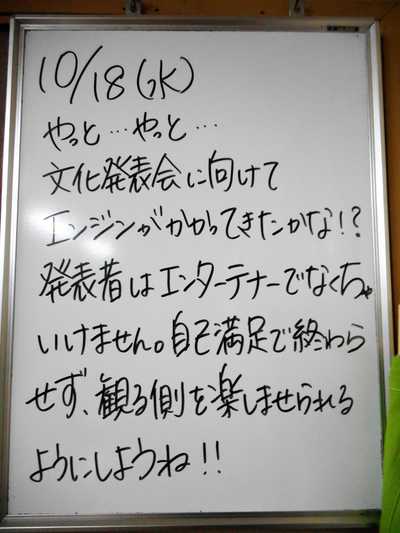 10/18(水)
やっと…やっと…
文化発表会に向けて
エンジンがかかってきたかな!?
発表者はエンターテナーでなくちゃ
いけません。自己満足で終わら
せず、観る側を楽しませられる
ようにしようね!!